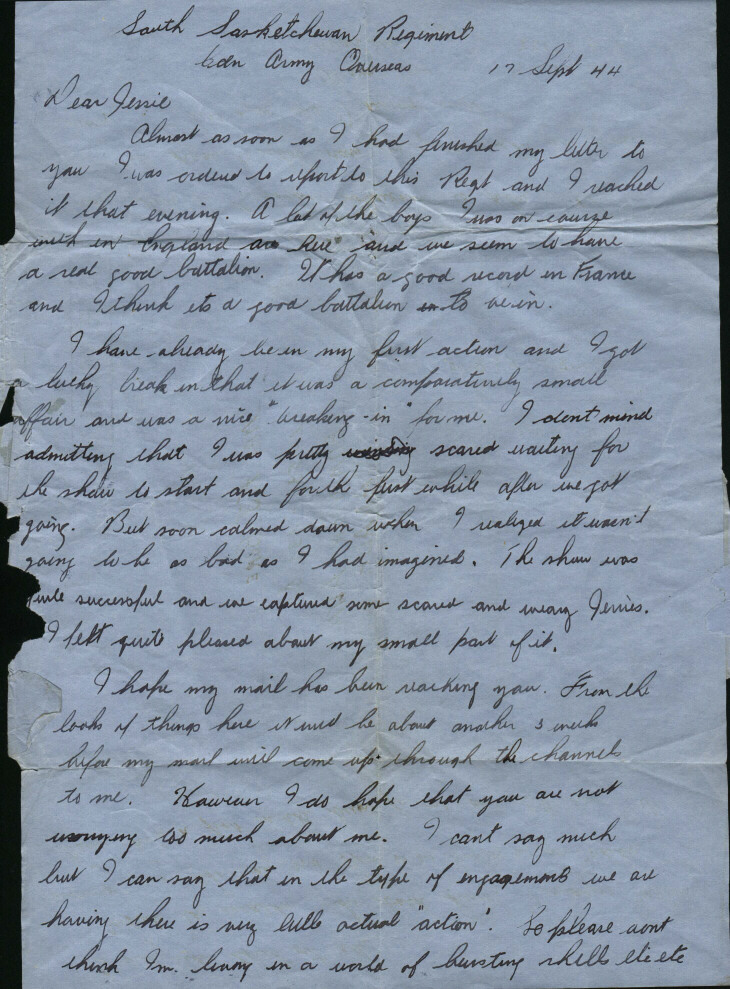 South Saskatchewan Regiment
Cdn Army Overseas 17 Sept 44
Dear Jessie
Almost as soon as I had finished my letter to
you I was ordered to report to this Regt and I reached
it that evening. A lot of the boys I was on course
with in England are here and we seem to have
a real good battalion. It has a good record in France
and I think its a good battalion to be in.
I have already been in my first action and I got
a lucky break in that it was a comparatively small
affair and was a nice "breaking-in" for me. I don't mind
admitting that I was pretty scared waiting for
the show to start and for the first while after we got
going. But soon calmed down when I realized it wasn't
going to be as bad as I had imagined. The show was
quite successful and we captured some scared and weary Jerries.
I felt quite pleased about my small part of it.
I hope my mail has been reaching you. From the
looks of things here it will be about another 3 weeks
before my mail will come up through the channels
to me. However I do hope that you are not
worrying too much about me. I can't say much
but I can say that in the type of engagements we are
having there is very little actual "action". So please dont
think I'm living in a world of bursting shells etc etc